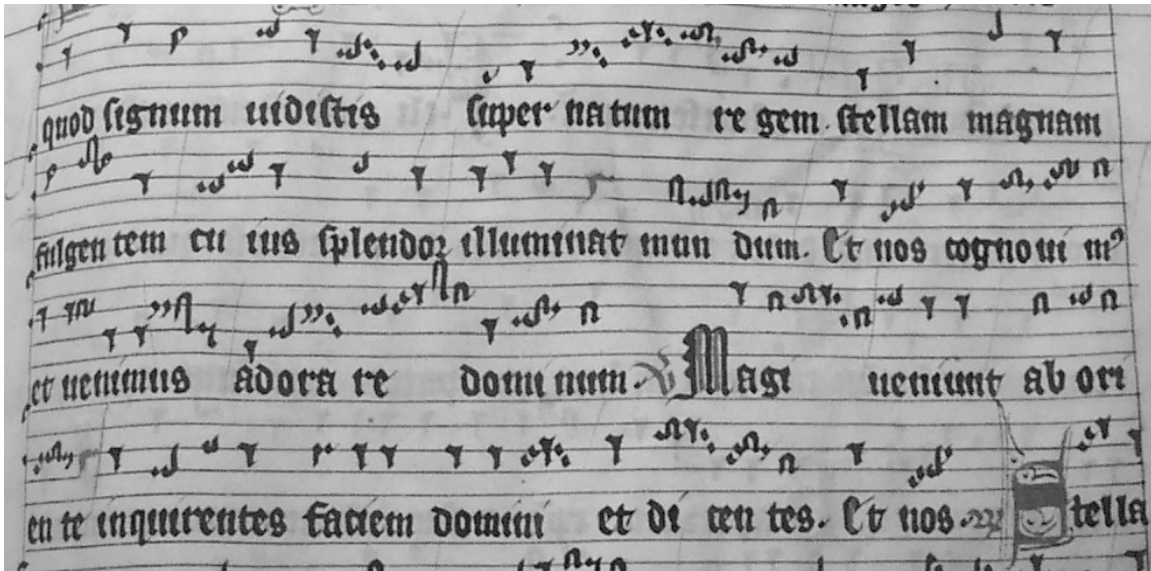 quod signum uidistis super natum regem. stellam magnam
fulgentem cuius splendor illuminat mundum. Et nos cognouim⁹
et uenimus adorare dominum. Magi ueniunt ab ori
ente inquirentes faciem domini et dicentes. Et nos. Stella